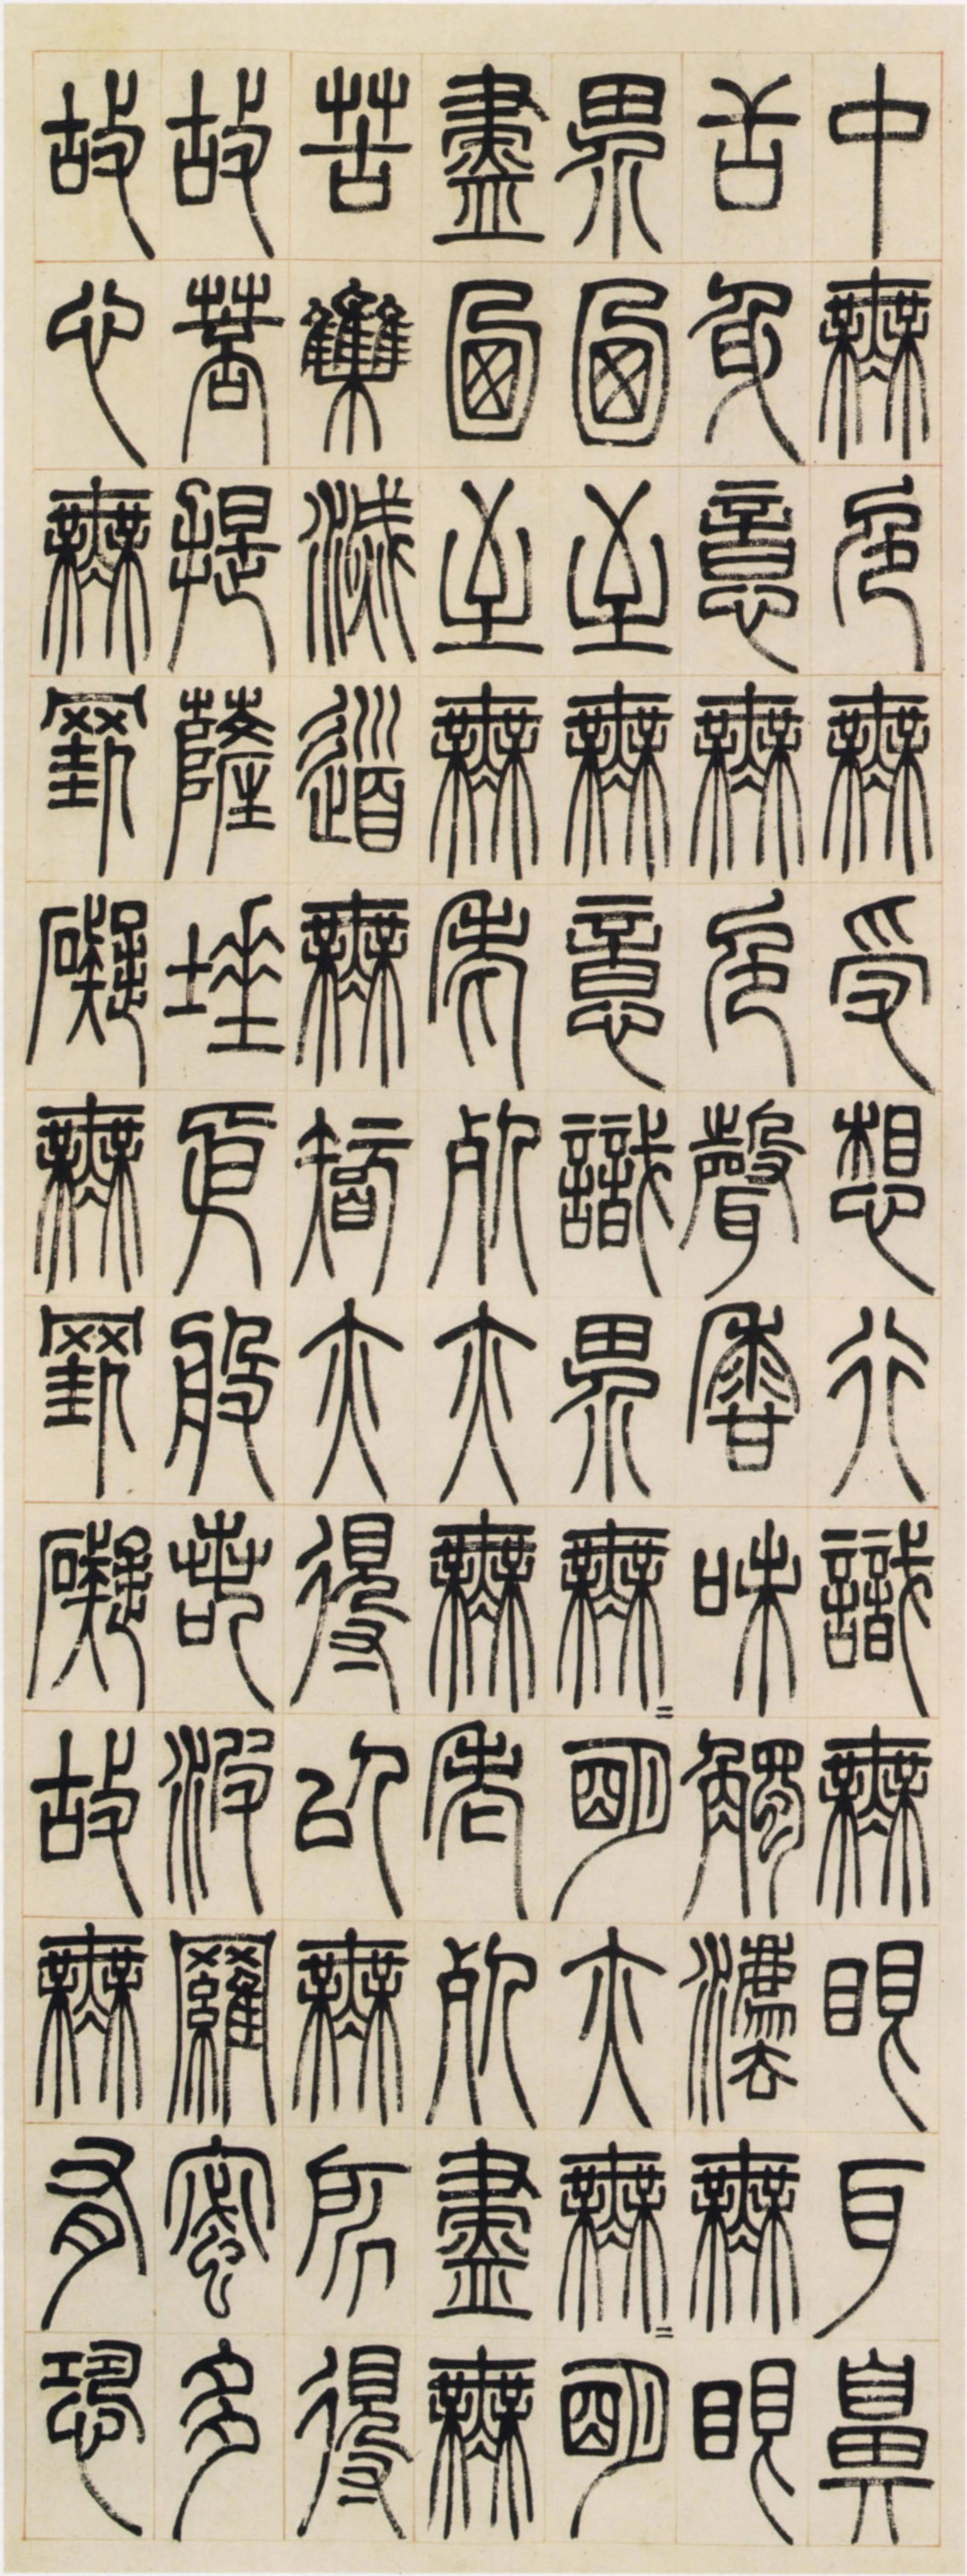 中無色無受想行識無眼耳鼻
舌身意無色聲香味觸法無眼
界乃至無意識界無〻明亦無〻明
盡乃至無老死亦無老死盡無
苦集滅道無智亦得以無所得
故菩提薩埵依般若波羅蜜多
故心無罣礙無罣礙故無有恐